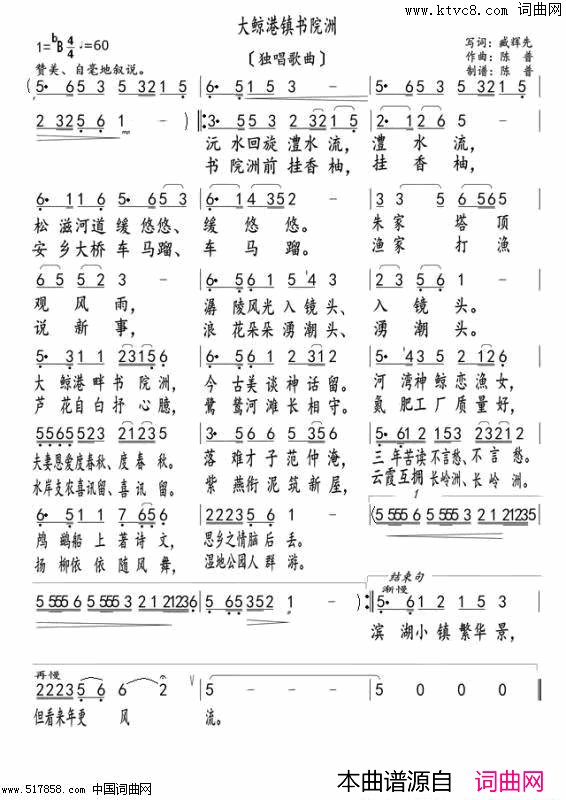 www.ktvc8.com 词曲网
大鲸港镇书院洲
〔独唱歌曲〕
1=ᵇB 4/4 ♩=60
赞美、自毫地叙说。
写词：臧辉先
作曲：陈普
制谱：陈普
(5· 65 3 5 321 5 | 6· 5 1 - | 5· 65 3 5 321 5
2 325 6 1 - ) | 3· 5 3 2 321 5 | 2· 1 2 6 -
沅水回旋澧水流， 澧水流，
书院洲前挂香柚， 挂香柚，
松滋河道缓悠悠、 缓悠悠。 朱家塔顶
安乡大桥车马蹓、 车马蹓。 渔家打渔
6 5 5 2 3 - | 6· 5 6 1 5 4 3 | 2 3 5 6 1 -
观风雨， 潺陵风光入镜头、 入镜头。
说新事， 浪花朵朵湧潮头、 湧潮头。
5· 3 1 1 2315 6 | 6· 5 6 1 2 31 2 | 5· 43 5 2 12 6
大鲸港畔书院洲， 今古美谈神话留。 河湾神鲸恋渔女，
芦花自白抒心臆， 鹭鸶河滩长相守。 氨肥工厂质量好，
5565 523 2123 5 | 6· 5 3 5 6 535 6 | 5· 61 2 153 2321 2
夫妻恩爱度春秋、度春秋。 落难才子范仲淹， 三年苦读不言愁、不言愁。
水岸支农喜讯留、喜讯留。 紫燕衔泥筑新屋， 云霞互拥长岭洲、长岭洲。
5· 6 5 1 7 65 6 | 2223 5 6 1 - | 1
鸬鹚船上著诗文， 思乡之情脑后丢。
扬柳依依随风舞， 湿地公园人群游。
5 555 6 5556 3 2 1 21236 | 5 653 52 1 - )
结束句
渐慢
5· 61 2 1 5 3
滨湖小镇繁华景，
再慢
2223 5 6 6 2 | 5 - - - | 5 0 0 0
但看来年更风 流。
www.517858.com 中国词曲网
本曲谱源自 词曲网